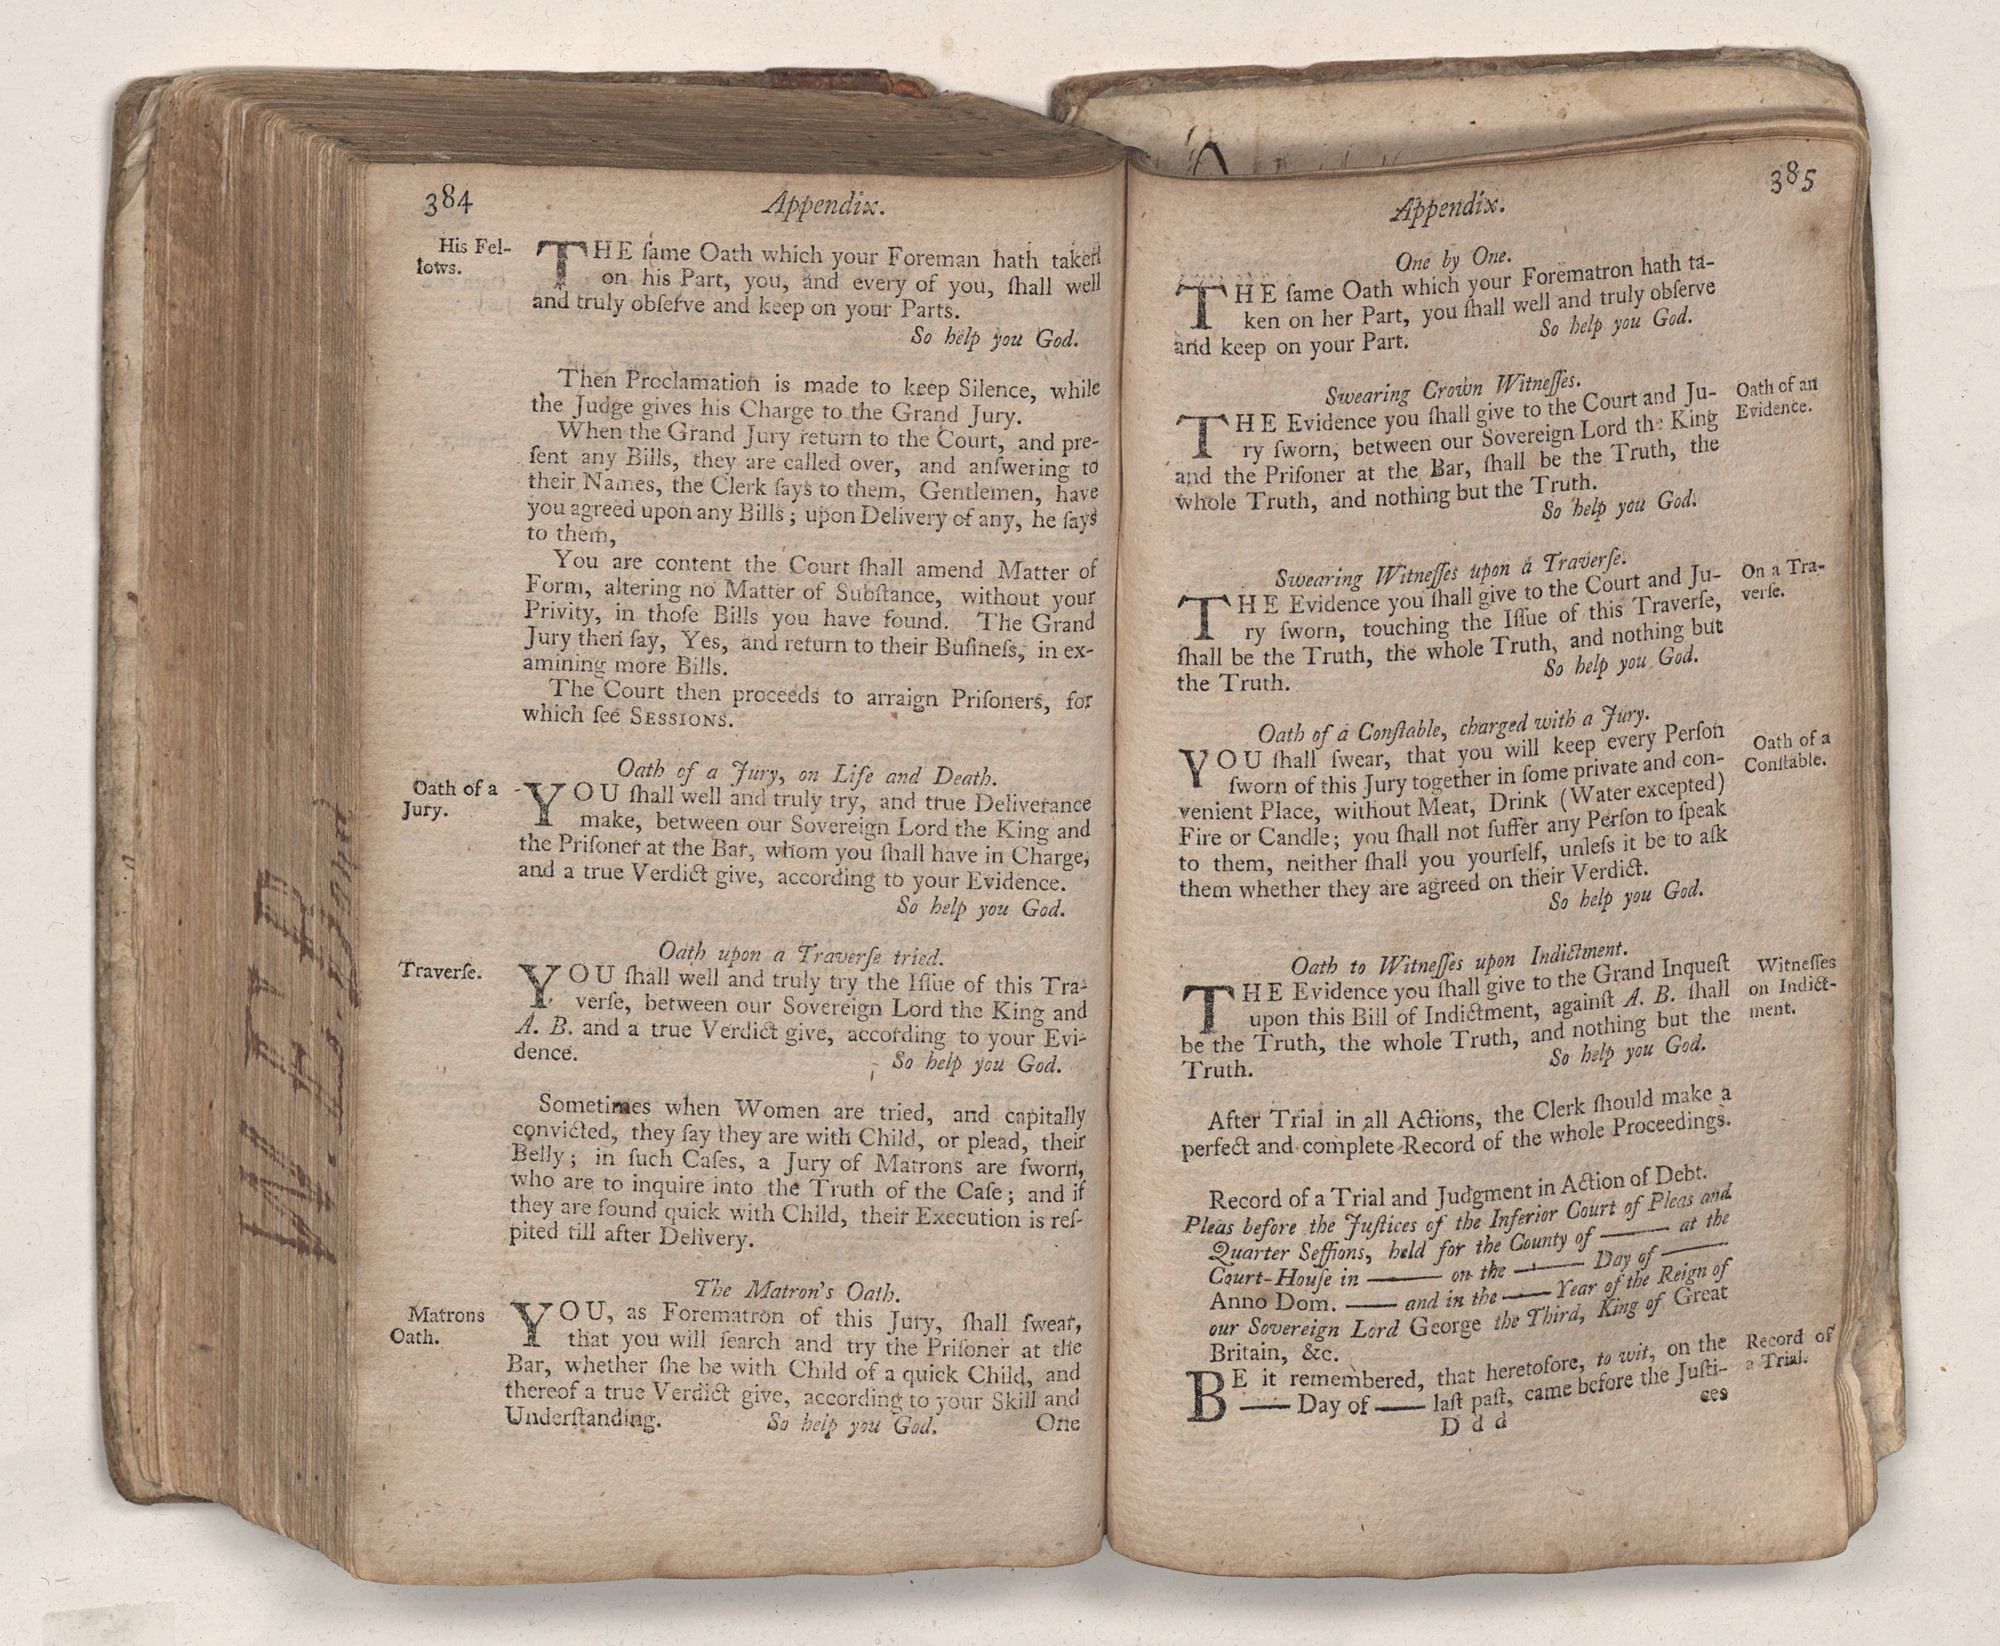 384
Appendix.
His Fel-
lows.
THE ſame Oath which your Foreman hath taken
on his Part, you, and every of you, ſhall well
and truly obſerve and keep on your Parts.
So help you God.
Then Proclamation is made to keep Silence, while
the Judge gives his Charge to the Grand Jury.
When the Grand Jury return to the Court, and pre-
ſent any Bills, they are called over, and anſwering to
their Names, the Clerk ſays to them, Gentlemen, have
you agreed upon any Bills; upon Delivery of any, he ſays
to them,
You are content the Court ſhall amend Matter of
Form, altering no Matter of Subſtance, without your
Privity, in thoſe Bills you have found. The Grand
Jury then ſay, Yes, and return to their Buſineſs, in ex-
amining more Bills.
The Court then proceeds to arraign Priſoners, for
which ſee SESSIONS.
Oath of a Jury, on Life and Death.
Oath of a
Jury.
YOU ſhall well and truly try, and true Deliverance
make, between our Sovereign Lord the King and
the Priſoner at the Bar, whom you ſhall have in Charge,
and a true Verdict give, according to your Evidence.
So help you God.
Oath upon a Traverſe tried.
Traverſe.
YOU ſhall well and truly try the Iſſue of this Tra-
verſe, between our Sovereign Lord the King and
A. B. and a true Verdict give, according to your Evi-
dence. So help you God.
Sometimes when Women are tried, and capitally
convicted, they ſay they are with Child, or plead, their
Belly; in ſuch Caſes, a Jury of Matrons are ſworn,
who are to inquire into the Truth of the Caſe; and if
they are found quick with Child, their Execution is reſ-
pited till after Delivery.
The Matron's Oath.
Matrons
Oath.
YOU, as Forematron of this Jury, ſhall ſwear,
that you will ſearch and try the Priſoner at the
Bar, whether ſhe be with Child of a quick Child, and
thereof a true Verdict give, according to your Skill and
Underſtanding. So help you God. One
385
Appendix.
One by One.
THE ſame Oath which your Forematron hath ta-
ken on her Part, you ſhall well and truly obſerve
and keep on your Part. So help you God.
Swearing Crown Witneſſes.
THE Evidence you ſhall give to the Court and Ju-
ry ſworn, between our Sovereign Lord the King
and the Priſoner at the Bar, ſhall be the Truth, the
whole Truth, and nothing but the Truth.
So help you God.
Oath of an
Evidence.
Swearing Witneſſes upon a Traverſe.
THE Evidence you ſhall give to the Court and Ju-
ry ſworn, touching the Iſſue of this Traverſe,
ſhall be the Truth, the whole Truth, and nothing but
the Truth. So help you God.
On a Tra-
verſe.
Oath of a Conſtable, charged with a Jury.
YOU ſhall ſwear, that you will keep every Perſon
ſworn of this Jury together in ſome private and con-
venient Place, without Meat, Drink (Water excepted)
Fire or Candle; you ſhall not ſuffer any Perſon to ſpeak
to them, neither ſhall you yourſelf, unleſs it be to aſk
them whether they are agreed on their Verdict.
So help you God.
Oath of a
Conſtable.
Oath to Witneſſes upon Indictment.
THE Evidence you ſhall give to the Grand Inqueſt
upon this Bill of Indictment, againſt A. B. ſhall
be the Truth, the whole Truth, and nothing but the
Truth. So help you God.
Witneſſes
on Indict-
ment.
After Trial in all Actions, the Clerk ſhould make a
perfect and complete Record of the whole Proceedings.
Record of a Trial and Judgment in Action of Debt.
Pleas before the Juſtices of the Inferior Court of Pleas and
Quarter Seſſions, held for the County of —— at the
Court-Houſe in —— on the —— Day of ——
Anno Dom. —— and in the —— Year of the Reign of
our Sovereign Lord George the Third, King of Great
Britain, &c.
BE it remembered, that heretofore, to wit, on the
—— Day of —— laſt paſt, came before the Juſti-
D d d ces
Record of
a Trial.